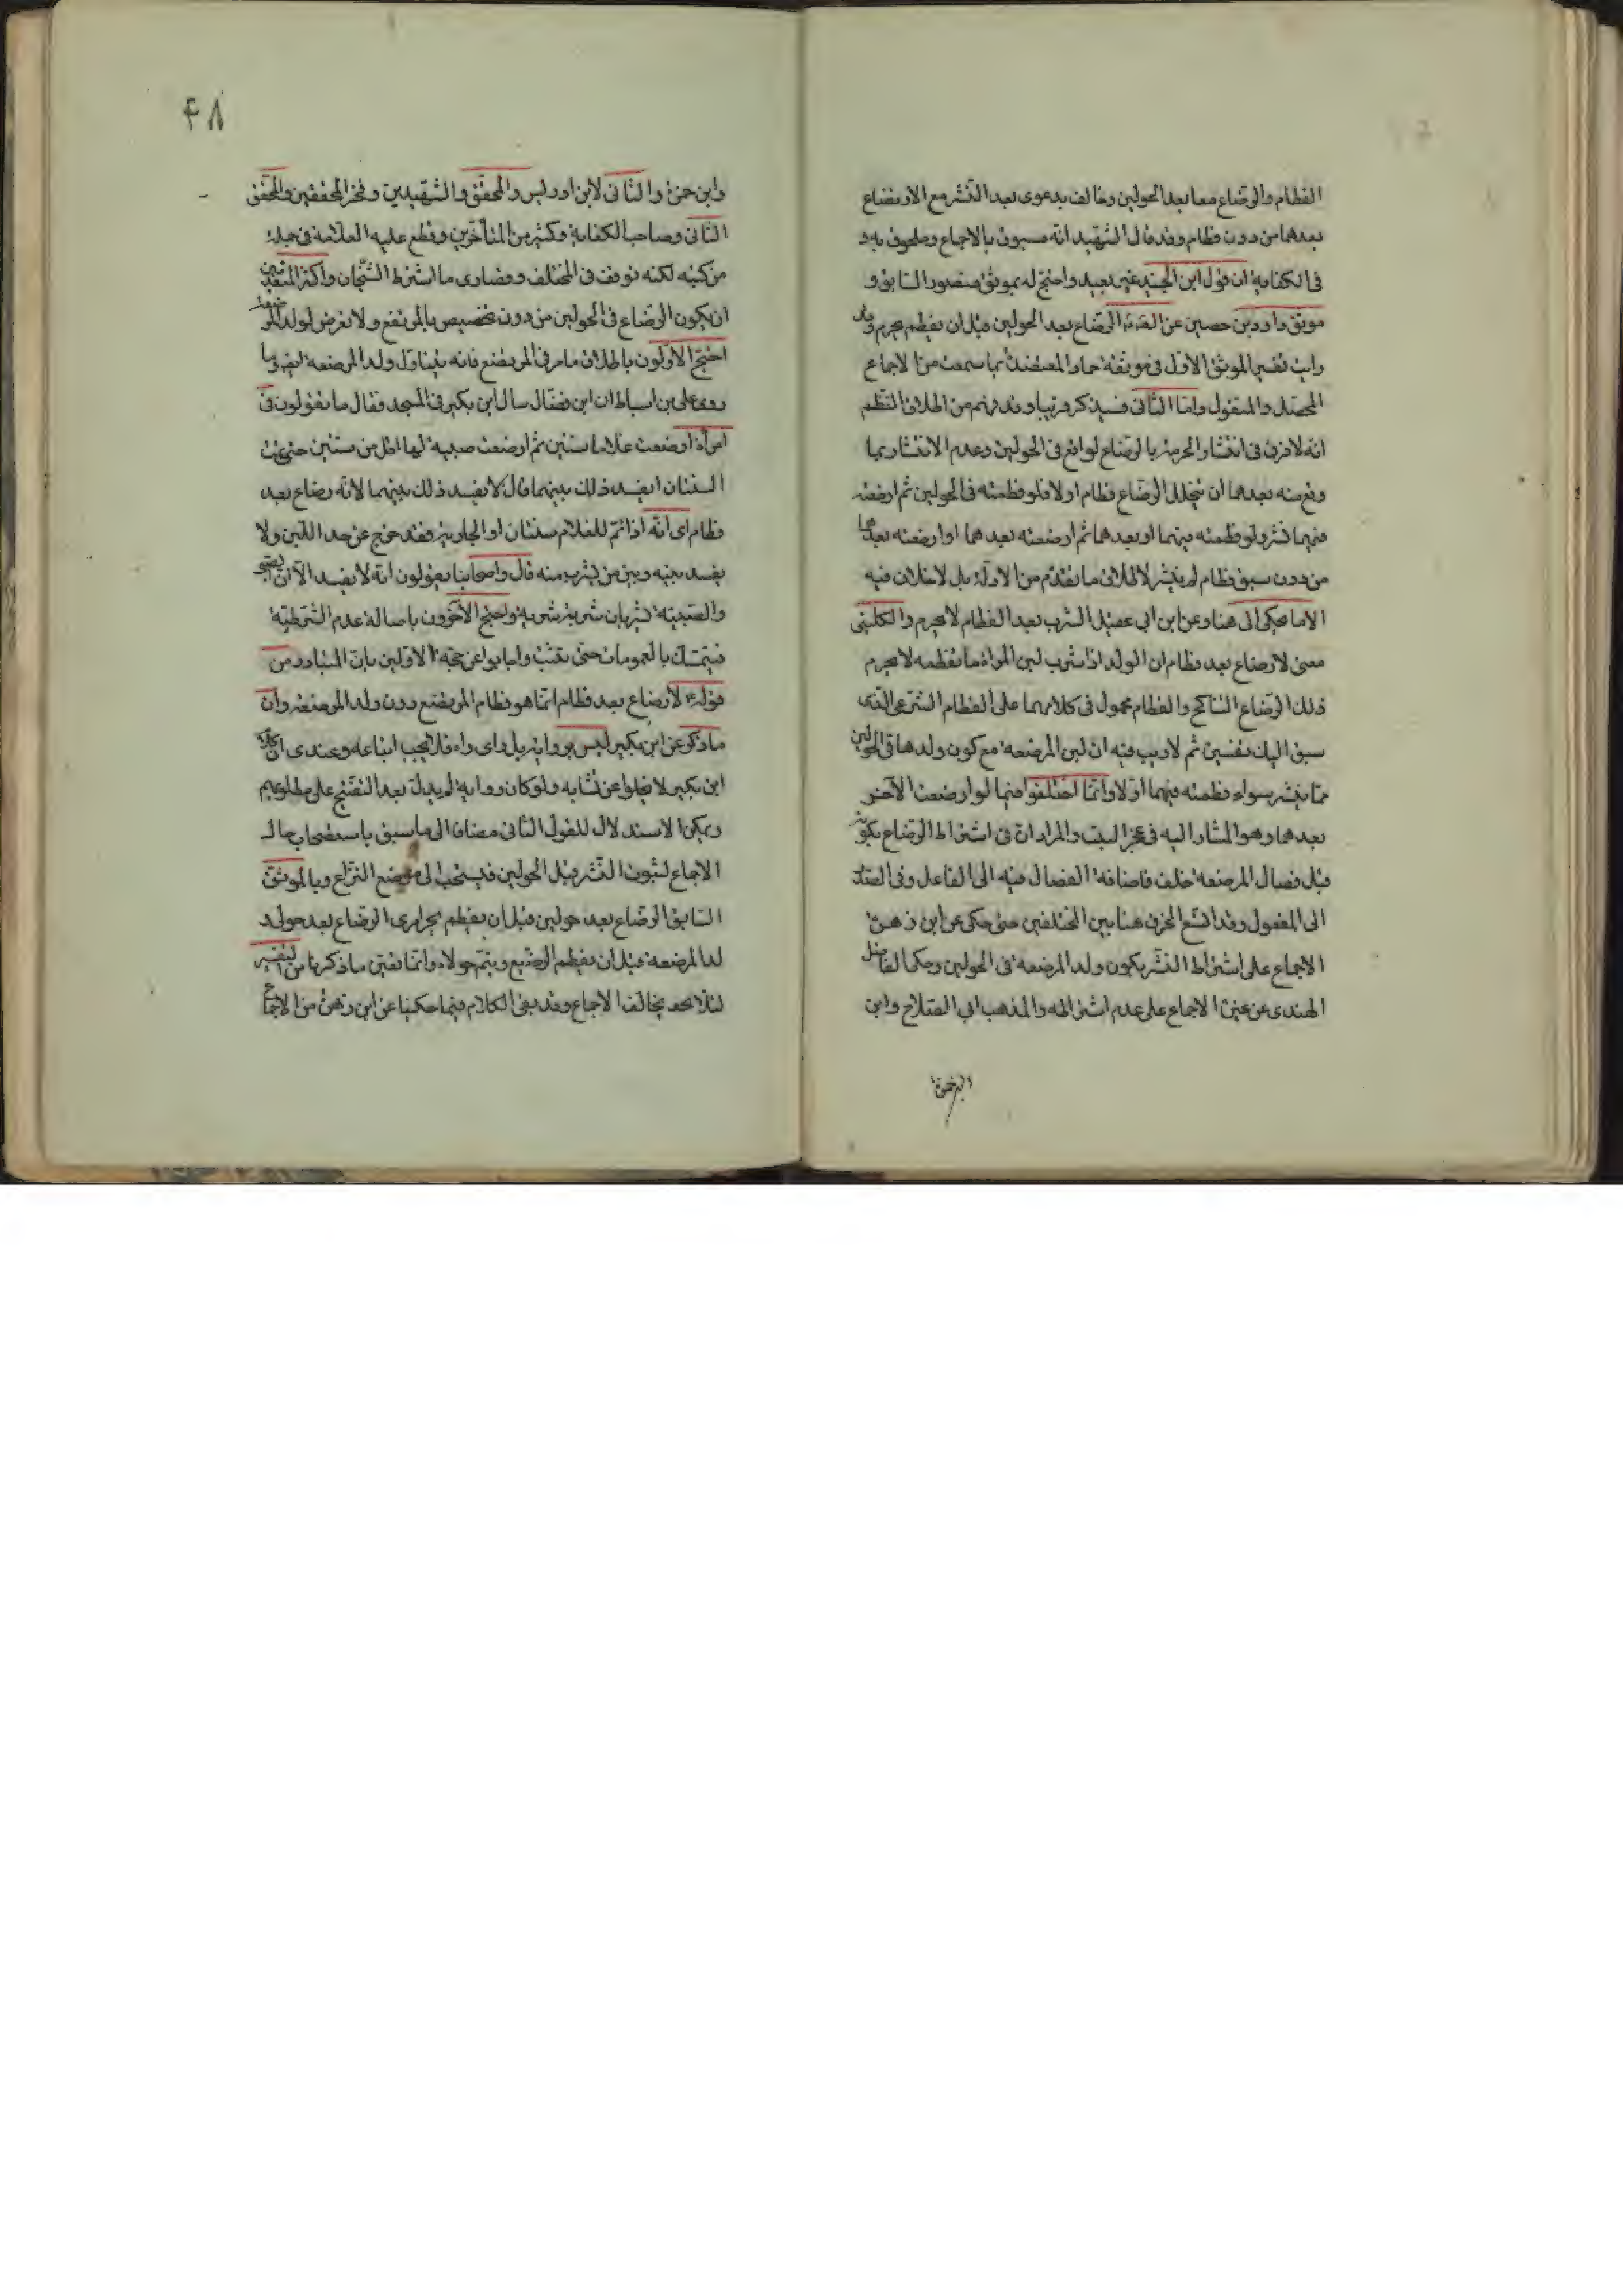 الفطام والرضاع معا بعد الحولين وخالف بدعوى بعد النشر مع الارتضاع
بعدهما من دون فطام وقد قال الشهيد انه مسبوق بالاجماع وملحوق به و
فى الكفاية ان قول ابن الجنيد غير بعيد واحتج له بموثق منصور السابق و
موثق داود بن حصين عن الصادق الرضاع بعد الحولين قبل ان يفطم يحرم وقد
رايت تفسير الموثق الاول فى موثقة حماد المعتضدة بما سمعت من الاجماع
المحصل والمنقول واما الثانى فسيذكر قريبا وقد فهم من اطلاق النظم
انه لا فرق فى انتشار الحرمة بالرضاع لواقع فى الحولين وعدم الانتشار بما
وقع منه بعدهما ان يتخلل الرضاع فطام اولا فلو فطمته فى الحولين ثم ارضعته
فيهما نشر ولو فطمته فيهما او بعدهما ثم ارضعته بعدهما او ارضعته بعدهما
من دون سبق فطام لم ينشر لاطلاق ما تقدم من الادلة بل لا خلاف فيه
الا ما حكى الى هنا وعن ابن ابى عقيل الشرب بعد الفطام لا يحرم والكلينى
معنى لا رضاع بعد فطام ان الولد اذا شرب لبن المراة ما تفطمه لا يحرم
ذلك الرضاع التناكح والفطام محمول فى كلامهما على الفطام الشرعى الذى
سبق اليك تفسيره ثم لا ريب فيه ان لبن المرضعة مع كون ولدها فى الحولين
مما ينشر سواء فطمته فيهما اولا وانما اختلفوا فيما لو ارضعت الآخر
بعدهما وهو المشار اليه فى عجز البيت والمراد ان فى اشتراط الرضاع بكونه
قبل فصال المرضعة خلف فاضافة الفصال فيه الى الفاعل وفى الصدر
الى المفعول وقد اتسع الخرق هنا بين المختلفين حتى حكى عن ابن زهرة
الاجماع على اشتراط النشر بكون ولد المرضعة فى الحولين وحكى الفاضل
الهندى عن غيره الاجماع على عدم اشتراطه والمذهب ابى الصلاح وابن
۴۸
وابن حمزة والثانى لابن ادريس والمحقق والشهيدين وفخر المحققين والمحقق
الثانى وصاحب الكفاية وكثير من المتأخرين وقطع عليه العلامة فى جملة
من كتبه لكنه توقف فى المختلف وقصارى ما اشترط الشيخان واكثر المتقدمين
ان يكون الرضاع فى الحولين من دون تخصيص بالمرتضع ولا تعرض لولد المرضعة
احتج الاولون باطلاق ما مر فى المرتضع فانه يتناول ولد المرضعة ايضا وما
روى على بن اسباط ان ابن فضال سال ابن بكير فى المسجد فقال ما تقولون فى
امرأة ارضعت غلاما سنتين ثم ارضعت صبية لها اقل من سنتين حتى تمت
السنتان ايفسد ذلك بينهما قال لا يفسد ذلك بينهما لانه رضاع بعد
فطام اى انه اذا تم للغلام سنتان او الجارية فقد خرج عن حد اللبن ولا
يفسد بينه وبين من يشرب منه قال واصحابنا يقولون انه لا يفسد الا ان يكون الصبى
والصبية يشربان شربة شربة واحتج الآخرون باصالة عدم الشرطية
فيتمسك بالعمومات حتى يثبت واجابوا عن حجة الاولين بان المتبادر من
قوله لا رضاع بعد فطام انما هو فطام المرتضع دون ولد المرضعة وان
ما ذكر عن ابن بكير ليس برواية بل راى راه فلا يجب اتباعه وعندى ان كلام
ابن بكير لا يخلو عن تشابه ولو كان رواية لم يدل بعد التفتيح على مطلوبهم
ويمكن الاستدلال للقول الثانى مضافا الى ما سبق باستصحاب حال
الاجماع لثبوت النشر قبل الحولين فيستصحب الى موضع النزاع وبالموثق
السابق الرضاع بعد حولين قبل ان يفطم يحرم اى الرضاع بعد حولى و
لد المرضعة قبل ان يفطم الرضيع ويتم حولاه وانما يتعين ما ذكرنا من التفسير
لئلا يخالف الاجماع وقد بقى الكلام فيما حكينا عن ابن زهرة من الاجماع